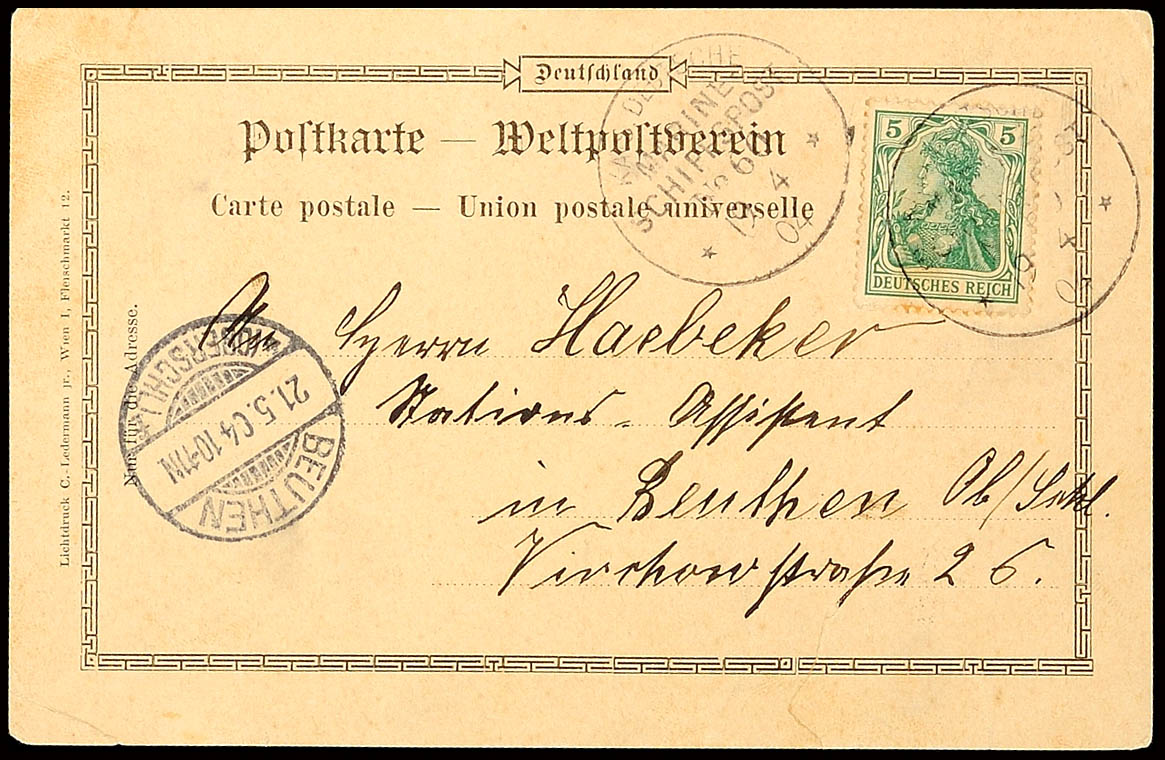 Deutschland
Postkarte — Weltpostverein
Carte postale — Union postale universelle
5 5
DEUTSCHES REICH
KAIS. DEUTSCHE
MARINE-
SCHIFFSPOST
No 60
4
04
An Herrn Haebeker
Stations-Assistent
in Beuthen Ob/Schl.
Virchowstraße 26.
Nur für die Adresse.
Lichtdruck C. Ledermann jr., Wien I, Fleischmarkt 12.
(OBERSCHL.)
21.5.04 10-11N
BEUTHEN